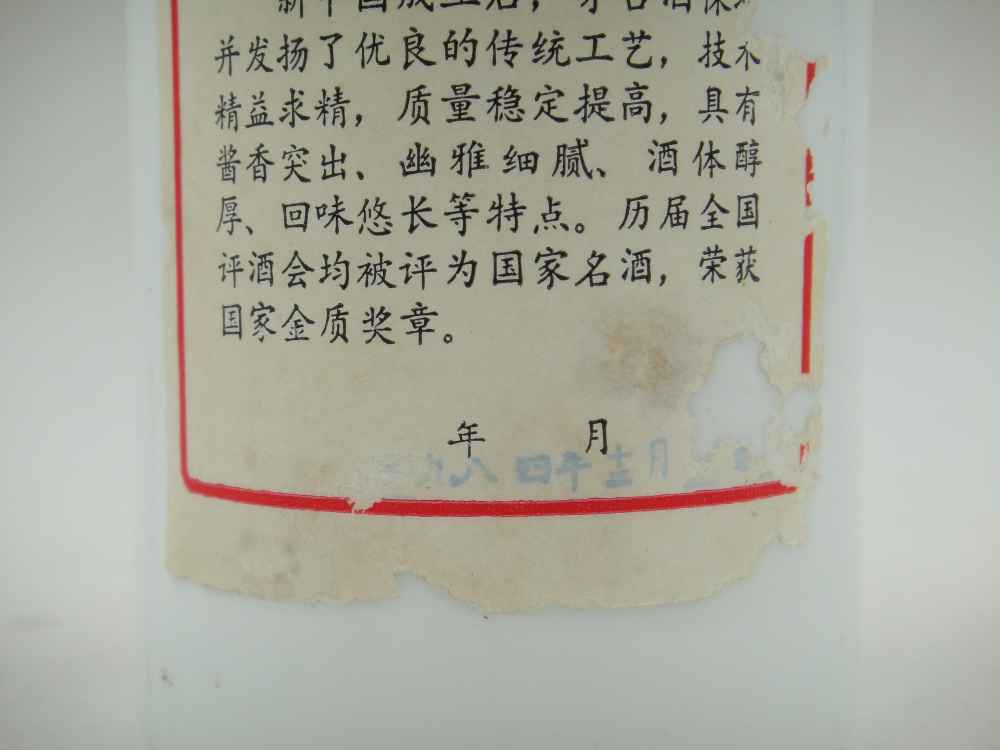 新中国成立后，茅台酒保
并发扬了优良的传统工艺，技术
精益求精，质量稳定提高，具有
酱香突出、幽雅细腻、酒体醇
厚、回味悠长等特点。历届全国
评酒会均被评为国家名酒，荣获
国家金质奖章。
年 月
九八四年十二月